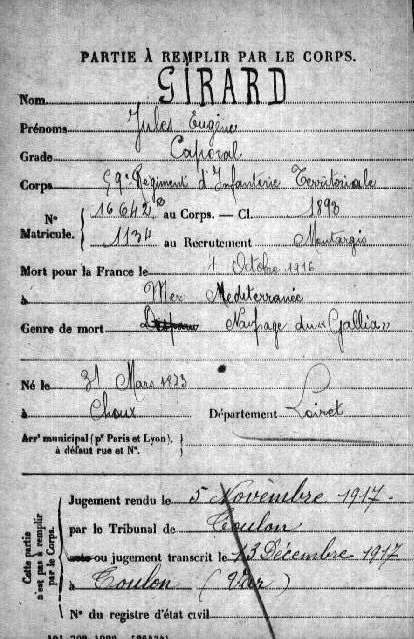 PARTIE À REMPLIR PAR LE CORPS.
Nom GIRARD
Prénoms Jules Eugène
Grade Caporal
Corps 59e Régiment d'Infanterie Territoriale
N° Matricule. { 16642 au Corps. — Cl. 1893
1134 au Recrutement Montargis
Mort pour la France le 4 Octobre 1916
à Mer Méditerranée
Genre de mort Disparu Naufrage du « Gallia »
Né le 31 Mars 1873
à Choux Département Loiret
Arrt municipal (pr Paris et Lyon), }
à défaut rue et N°.
Cette partie n'est pas à remplir par le Corps.
Jugement rendu le 5 Novembre 1917.
par le Tribunal de Toulon
acte ou jugement transcrit le 13 Décembre 1917
à Toulon (Var)
N° du registre d'état civil